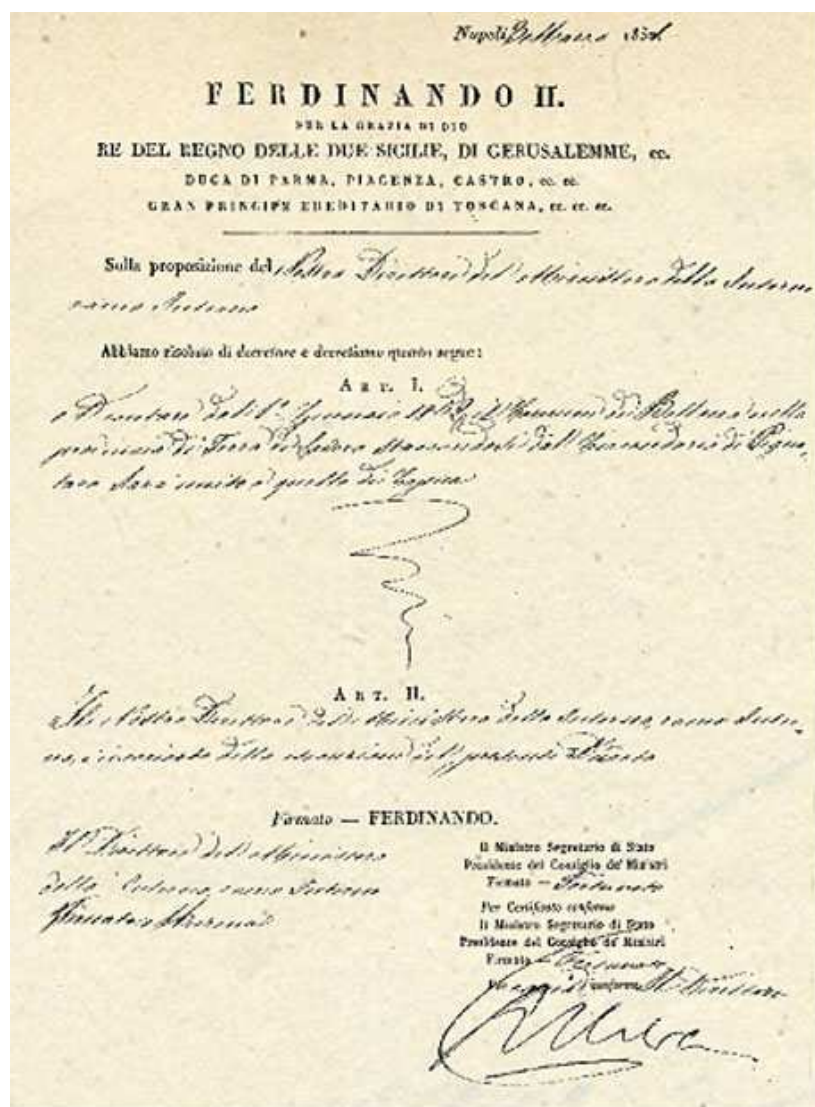 Napoli
FERDINANDO II.
PER LA GRAZIA DI DIO
RE DEL REGNO DELLE DUE SICILIE, DI GERUSALEMME, ec.
DUCA DI PARMA, PIACENZA, CASTRO, ec. ec.
GRAN PRINCIPE EREDITARIO DI TOSCANA, ec. ec. ec.
Sulla proposizione del Nostro Direttore del Ministero dello Interno
ramo Interno
Abbiamo risoluto di decretare e decretiamo quanto segue:
ART. I.
a Decorrere dal 1º Gennaio il Comune di Bellona nella
provincia di Terra di Lavoro dal Circondario di Pigna-
taro sarà unito a quello di Capua
ART. II.
Il Nostro Direttore del Ministero dello Interno, ramo Inter-
no, è incaricato della esecuzione del presente Decreto
Firmato — FERDINANDO.
Il Direttore del Ministero
dello Interno, ramo Interno
Firmato
Il Ministro Segretario di Stato
Presidente del Consiglio de' Ministri
Firmato — Fortunato
Per Certificato conforme
Il Ministro Segretario di Stato
Presidente del Consiglio de' Ministri
Firmato — Fortunato
conforme Il Direttore